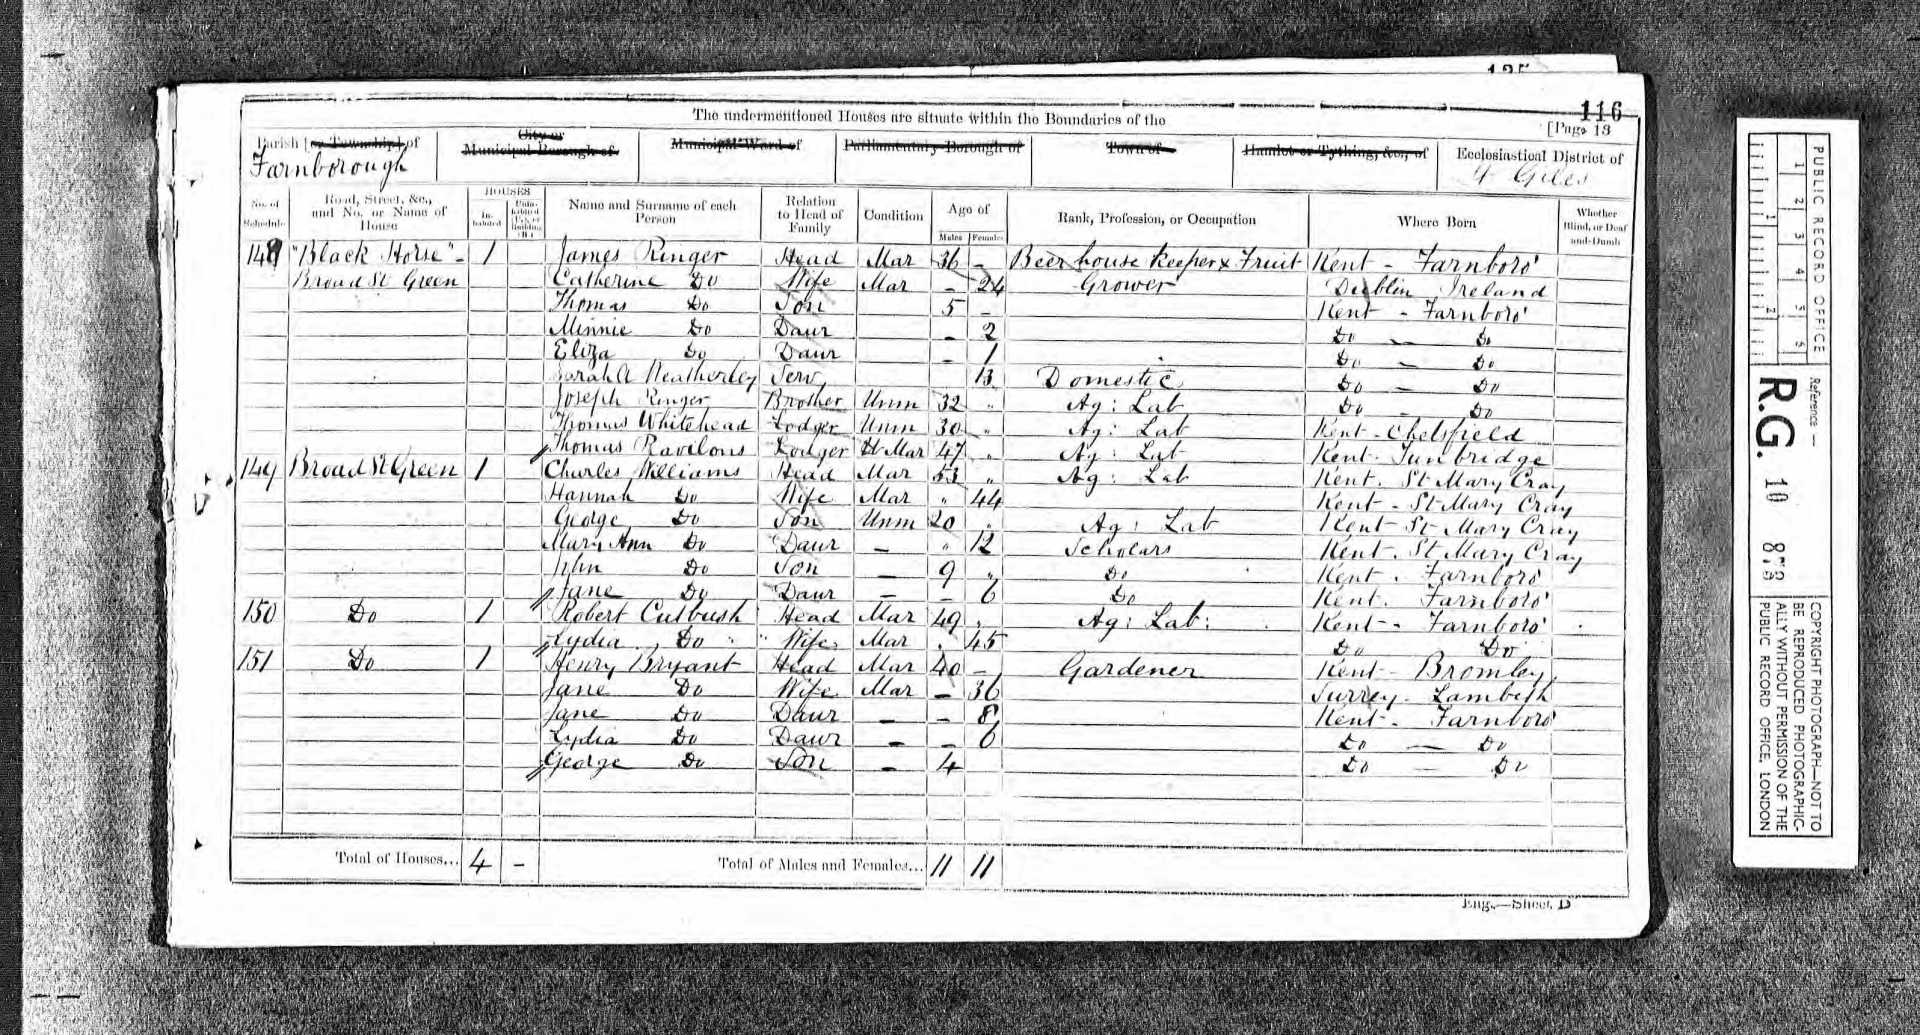 116
The undermentioned Houses are situate within the Boundaries of the
[Page 13
Parish [or Township] of
Farnborough
City or
Municipal Borough of
Municipal Ward of
Parliamentary Borough of
Town of
Hamlet or Tything, &c., of
Ecclesiastical District of
St Giles
No. of Schedule
Road, Street, &c., and No. or Name of House
HOUSES
Inhabited
Name and Surname of each Person
Relation to Head of Family
Condition
Age of
Males
Females
Rank, Profession, or Occupation
Where Born
Whether Blind, or Deaf and-Dumb
148 "Black Horse" - 1 James Ringer Head Mar 36 - Beer house Keeper & Fruit Kent - Farnboro'
Broad St Green Catherine Do Wife Mar - 24 Grower Dublin Ireland
Thomas Do Son 5 - Kent - Farnboro'
Minnie Do Daur - 2 Do - Do
Eliza Do Daur - 1 Do - Do
Sarah A Neatherley Serv 13 Domestic Do - Do
Joseph Ringer Brother Unm 32 " Ag: Lab Do - Do
Thomas Whitehead Lodger Unm 30 " Ag: Lab Kent - Chelsfield
Thomas Lodger Mar 47 " Ag: Lab Kent - Tunbridge
149 Broad St Green 1 Charles Williams Head Mar 53 " Ag: Lab Kent. St Mary Cray
Hannah Do Wife Mar " 44 Kent - St Mary Cray
George Do Son Unm 20 " Ag: Lab Kent St Mary Cray
Mary Ann Do Daur - " 12 Scholars Kent. St Mary Cray
John Do Son - 9 " Do Kent - Farnboro
Jane Do Daur - - 6 Do Kent. Farnboro'
150 Do 1 Robert Cutbush Head Mar 49 " Ag: Lab: Kent - Farnboro'
Lydia Do " " Wife Mar " 45 Do Do
151 Do 1 Henry Bryant Head Mar 40 - Gardener Kent - Bromley
Jane Do Wife Mar - 36 Surrey - Lambeth
Jane Do Daur - - 8 Kent - Farnboro'
Lydia Do Daur - - 6 Do - Do
George Do Son - 4 Do - Do
Total of Houses... 4 - Total of Males and Females... 11 11
Eng.—Sheet D
PUBLIC RECORD OFFICE
1 2 3 4 5
1 2
Reference —
R.G. 10 873
COPYRIGHT PHOTOGRAPH—NOT TO
BE REPRODUCED PHOTOGRAPHIC-
ALLY WITHOUT PERMISSION OF THE
PUBLIC RECORD OFFICE, LONDON